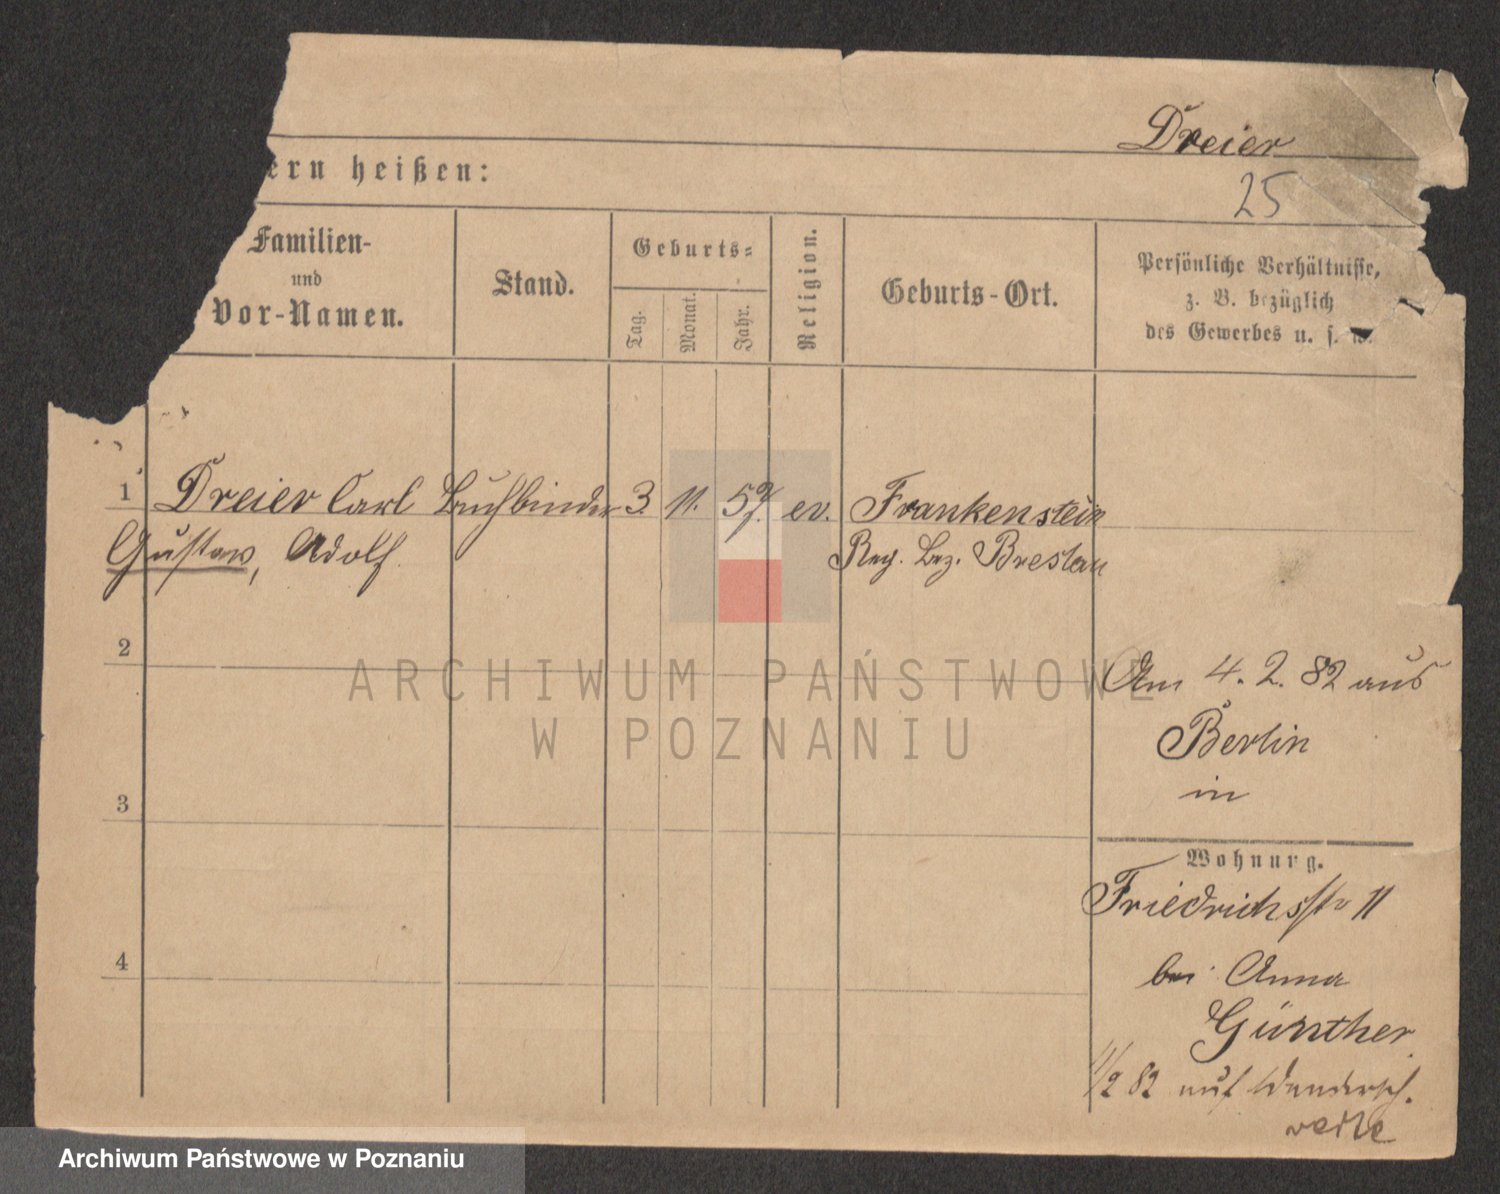 Dreier
ern heißen:
25
Familien-
und
Vor-Namen.
Stand.
Geburts-
Tag.
Monat.
Jahr.
Religion.
Geburts-Ort.
Persönliche Verhältnisse,
z. B. bezüglich
des Gewerbes u. s. w.
1 Dreier Carl Buchbinder 3. 11. 59. ev. Frankenstein
Gustav, Adolf. Reg. Bez. Breslau
2
Am 4. 2. 82 aus
Berlin
in
3
Wohnung.
Friedrichsstr 11
4
bei Anna
Günther
82 auf
ARCHIWUM PAŃSTWOWE
W POZNANIU
Archiwum Państwowe w Poznaniu